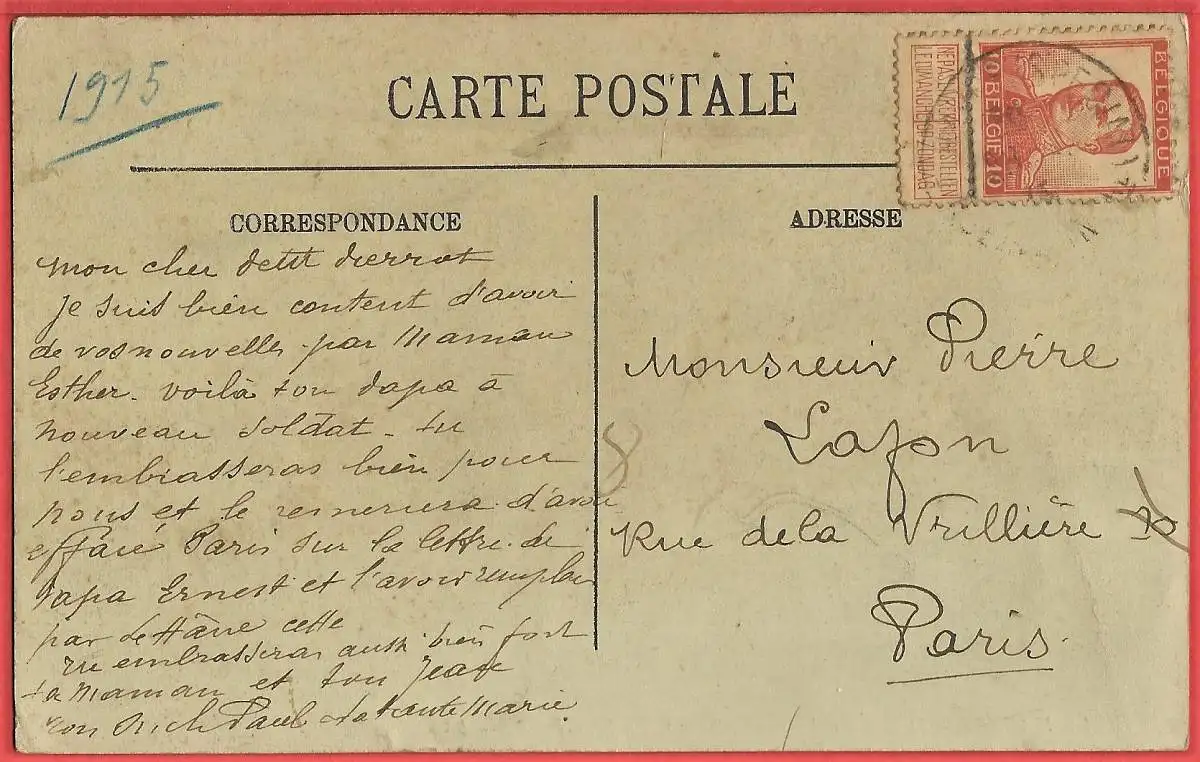 1915
CARTE POSTALE
NE PAS LIVRER LE DIMANCHE
NIET BESTELLEN OP ZONDAG
BELGIQUE
10 BELGIË 10
CORRESPONDANCE
ADRESSE
Mon cher petit Pierrot
Je suis bien content d'avoir
de vos nouvelles par Maman
Esther. Voilà ton papa à
nouveau soldat - tu
l'embrasseras bien pour
nous et le remerciera d'avoir
effacé Paris sur la lettre de
papa Ernest et l'avoir remplacé
par
tu embrasseras aussi bien fort
ta Maman et ton Jean
ton Paul et ta tante Marie
Monsieur Pierre
Lafon
Rue de la Vrillière
Paris